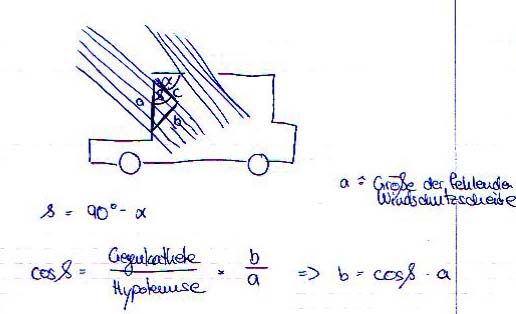 α
δ
a
c
b
a ≙ Größe der fehlenden
Windschutzscheibe
δ = 90° - α
cos δ = Gegenkathete / Hypotenuse = b / a => b = cos δ · a